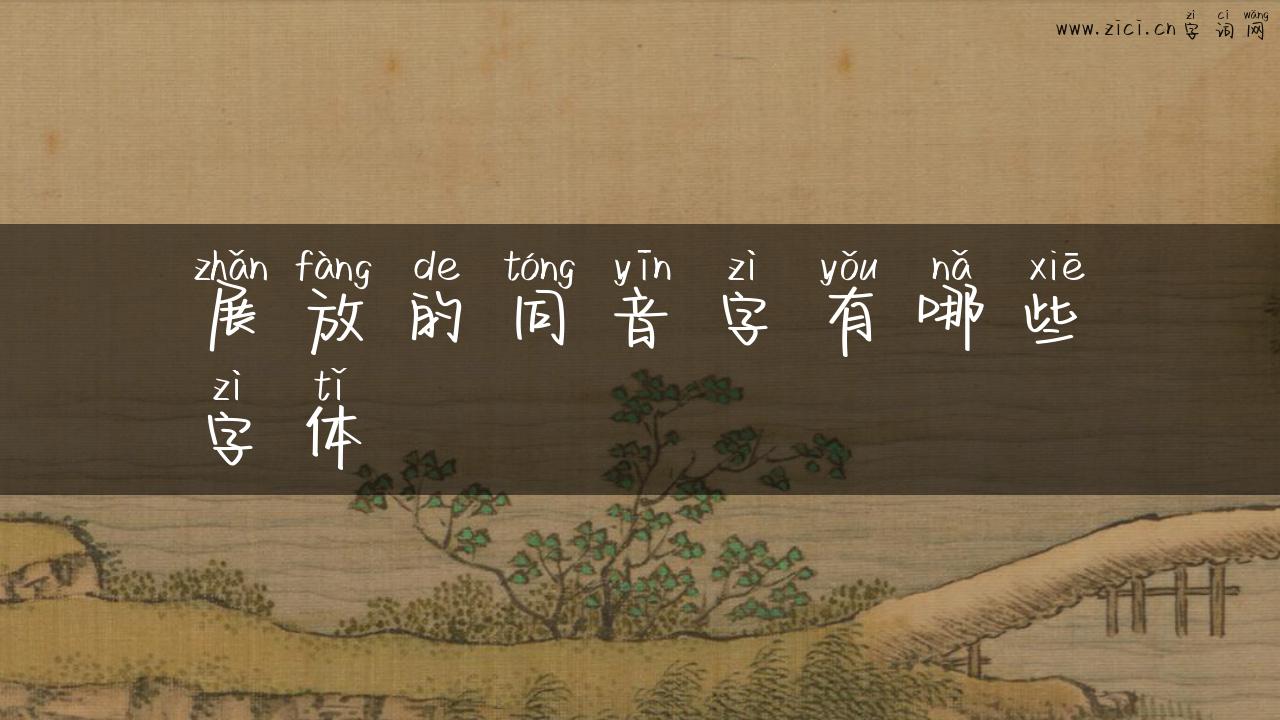 zì cí wǎng
www.zici.cn 字词网
zhǎn fàng de tóng yīn zì yǒu nǎ xiē
展放的同音字有哪些
zì tǐ
字体